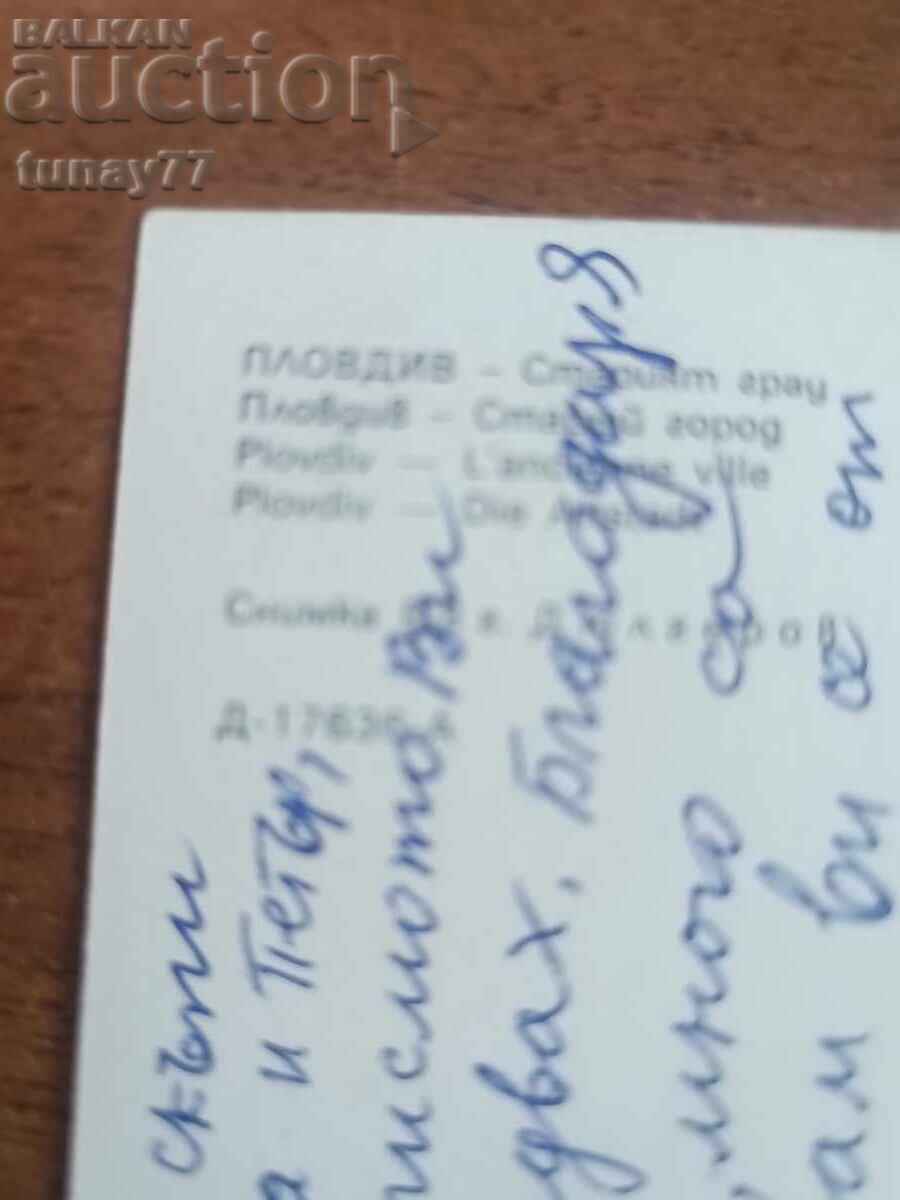 BALKAN
auction
tunay77
ПЛОВДИВ – Старият град
Пловдив – Старый город
Plovdiv — L'ancienne ville
Plovdiv — Die Altstadt
Снимка
Д-17636-А
Скъпи
а и Петър,
писмото Ви
двах. Благодаря
, много са
ам ви а от